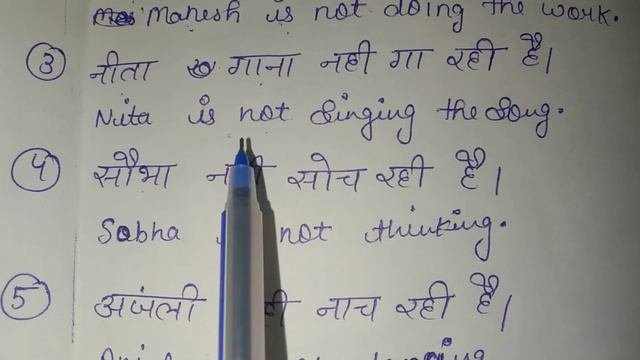 Mahesh is not doing the work.
③ नीता गाना नही गा रही है।
Nita is not singing the song.
④ सौभा सोच रही है।
Sobha not thinking.
⑤ अजंली नाच रही है।